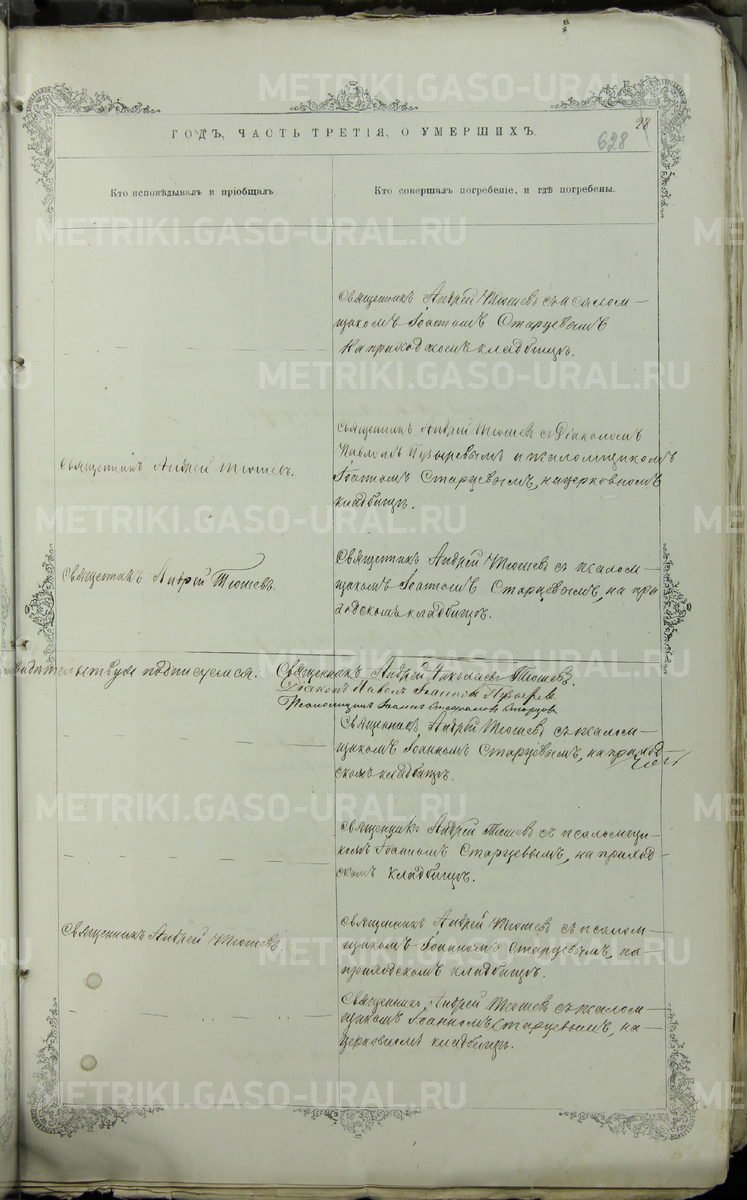 METRIKI.GASO-URAL.RU
28
628
ГОДЪ, ЧАСТЬ ТРЕТІЯ, О УМЕРШИХЪ.
Кто исповѣдывалъ и пріобщалъ.
Кто совершалъ погребеніе, и гдѣ погребены.
Священникъ Андрей Тюшевъ съ псалом-
щикомъ Іоанномъ Старцевымъ
на приходскомъ кладбищѣ.
Священникъ Андрей Тюшевъ.
Священникъ Андрей Тюшевъ съ Діакономъ
Павломъ Пузыревымъ и псаломщикомъ
Іоанномъ Старцевымъ, на церковномъ
кладбищѣ.
Священникъ Андрей Тюшевъ.
Священникъ Андрей Тюшевъ съ псалом-
щикомъ Іоанномъ Старцевымъ, на при
ходскомъ кладбищѣ.
подписуемся. Священникъ Андрей Николаевъ Тюшевъ.
Діаконъ Павелъ Іоанновъ Пузыревъ
Псаломщикъ Іоаннъ Стефановъ Старцовъ
Священникъ Андрей Тюшевъ съ псалом-
щикомъ Іоанномъ Старцевымъ, на приход-
скомъ кладбищѣ.
Священникъ Андрей Тюшевъ съ псаломщи-
комъ Іоанномъ Старцевымъ, на приход-
скомъ кладбищѣ.
Священникъ Андрей Тюшевъ.
Священникъ Андрей Тюшевъ съ псалом-
щикомъ Іоанномъ Старцевымъ, на
приходскомъ кладбищѣ.
Священникъ Андрей Тюшевъ съ псалом-
щикомъ Іоанномъ Старцевымъ, на
церковномъ кладбищѣ.